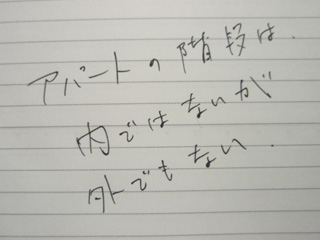 アパートの階段は.
内ではないが
外でもない.